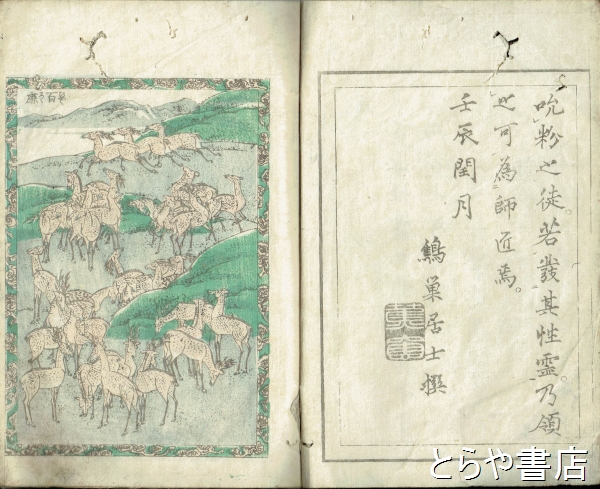 吮粉之徒。若發其性靈。乃領
之可為師匠焉。
壬辰閏月
鷦巢居士撰
百
とらや書店